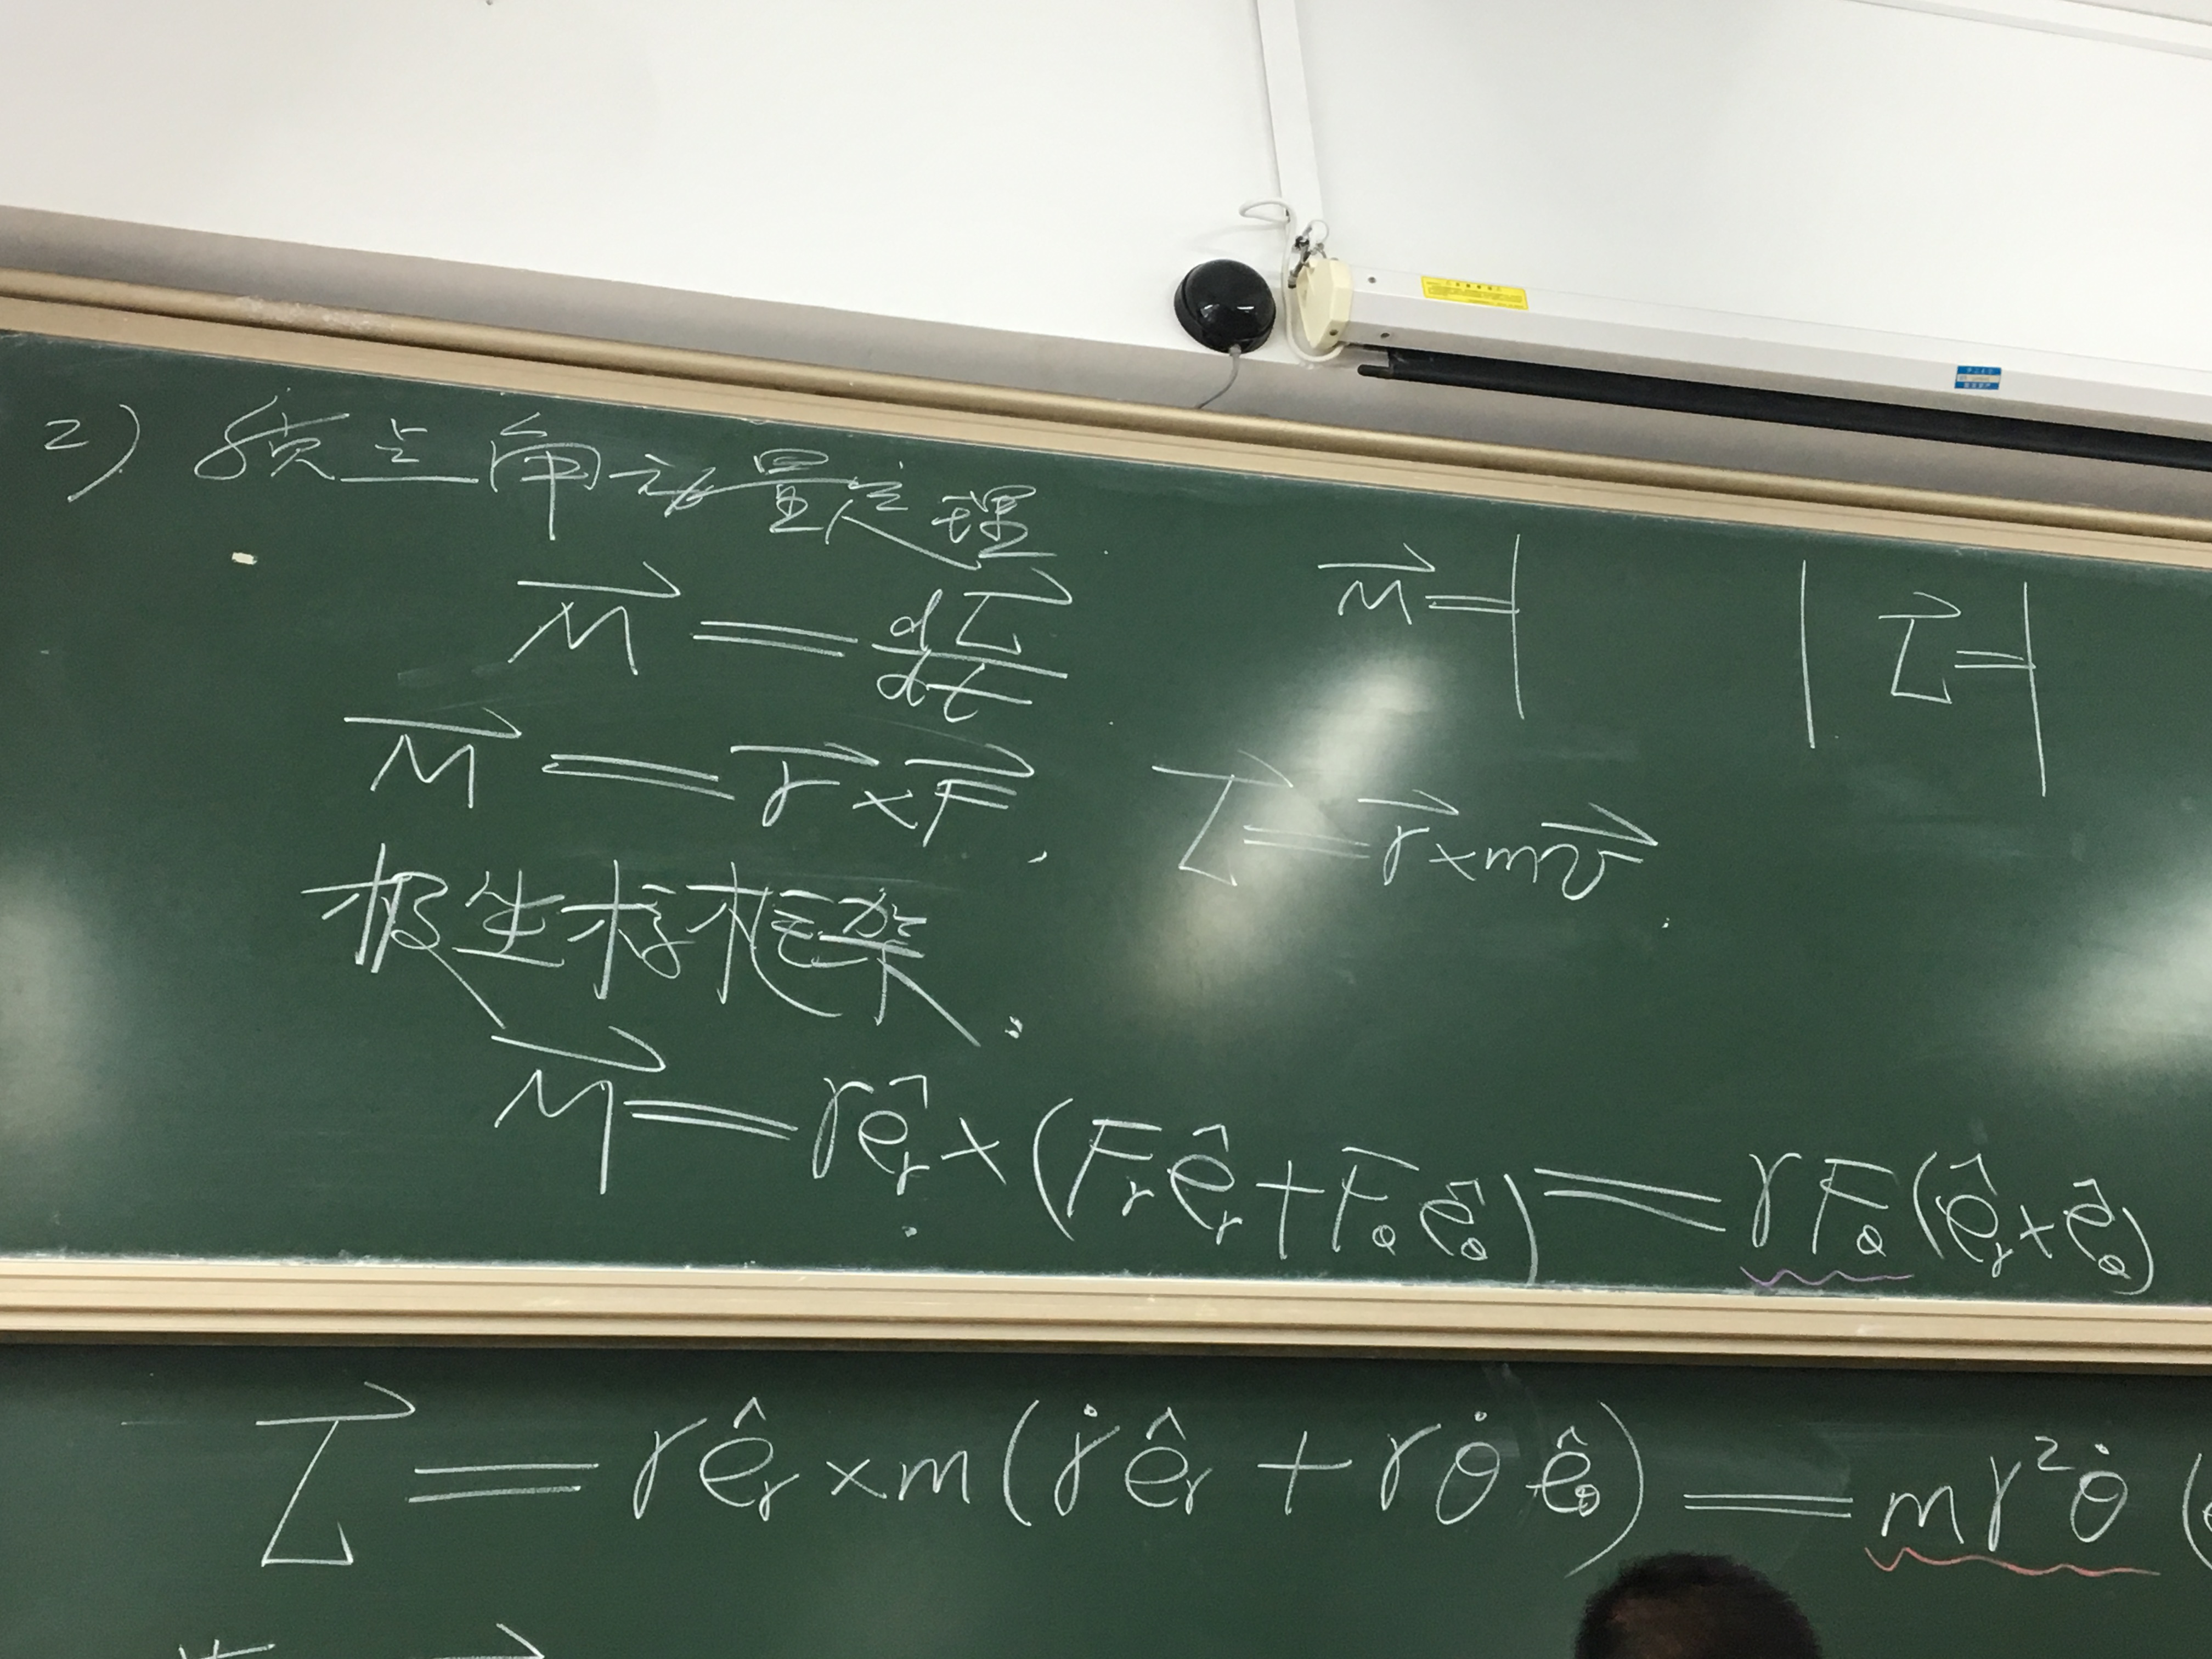 2) 质点角动量定理
$\vec{M} = \frac{d\vec{L}}{dt}$
$\vec{M} = |$ $|$ $\vec{L} = |$
$\vec{M} = \vec{r} \times \vec{F}$, $\vec{L} = \vec{r} \times m\vec{v}$.
极坐标框架:
$\vec{M} = r\hat{e}_r \times (F_r\hat{e}_r + F_\theta\hat{e}_\theta) = rF_\theta(\hat{e}_r \times \hat{e}_\theta)$
$\vec{L} = r\hat{e}_r \times m(\dot{r}\hat{e}_r + r\dot{\theta}\hat{e}_\theta) = mr^2\dot{\theta}($